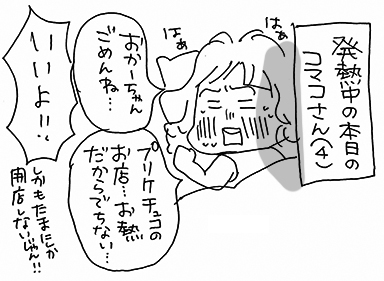 発熱中の本日の
コマコさん(4)
はぁ
はぁ
おかーちゃん
ごめんね…
プリケチュコの
お店…お熱
だからでちない…
いいよ!!
しかもたまにしか
開店しないじゃん!!